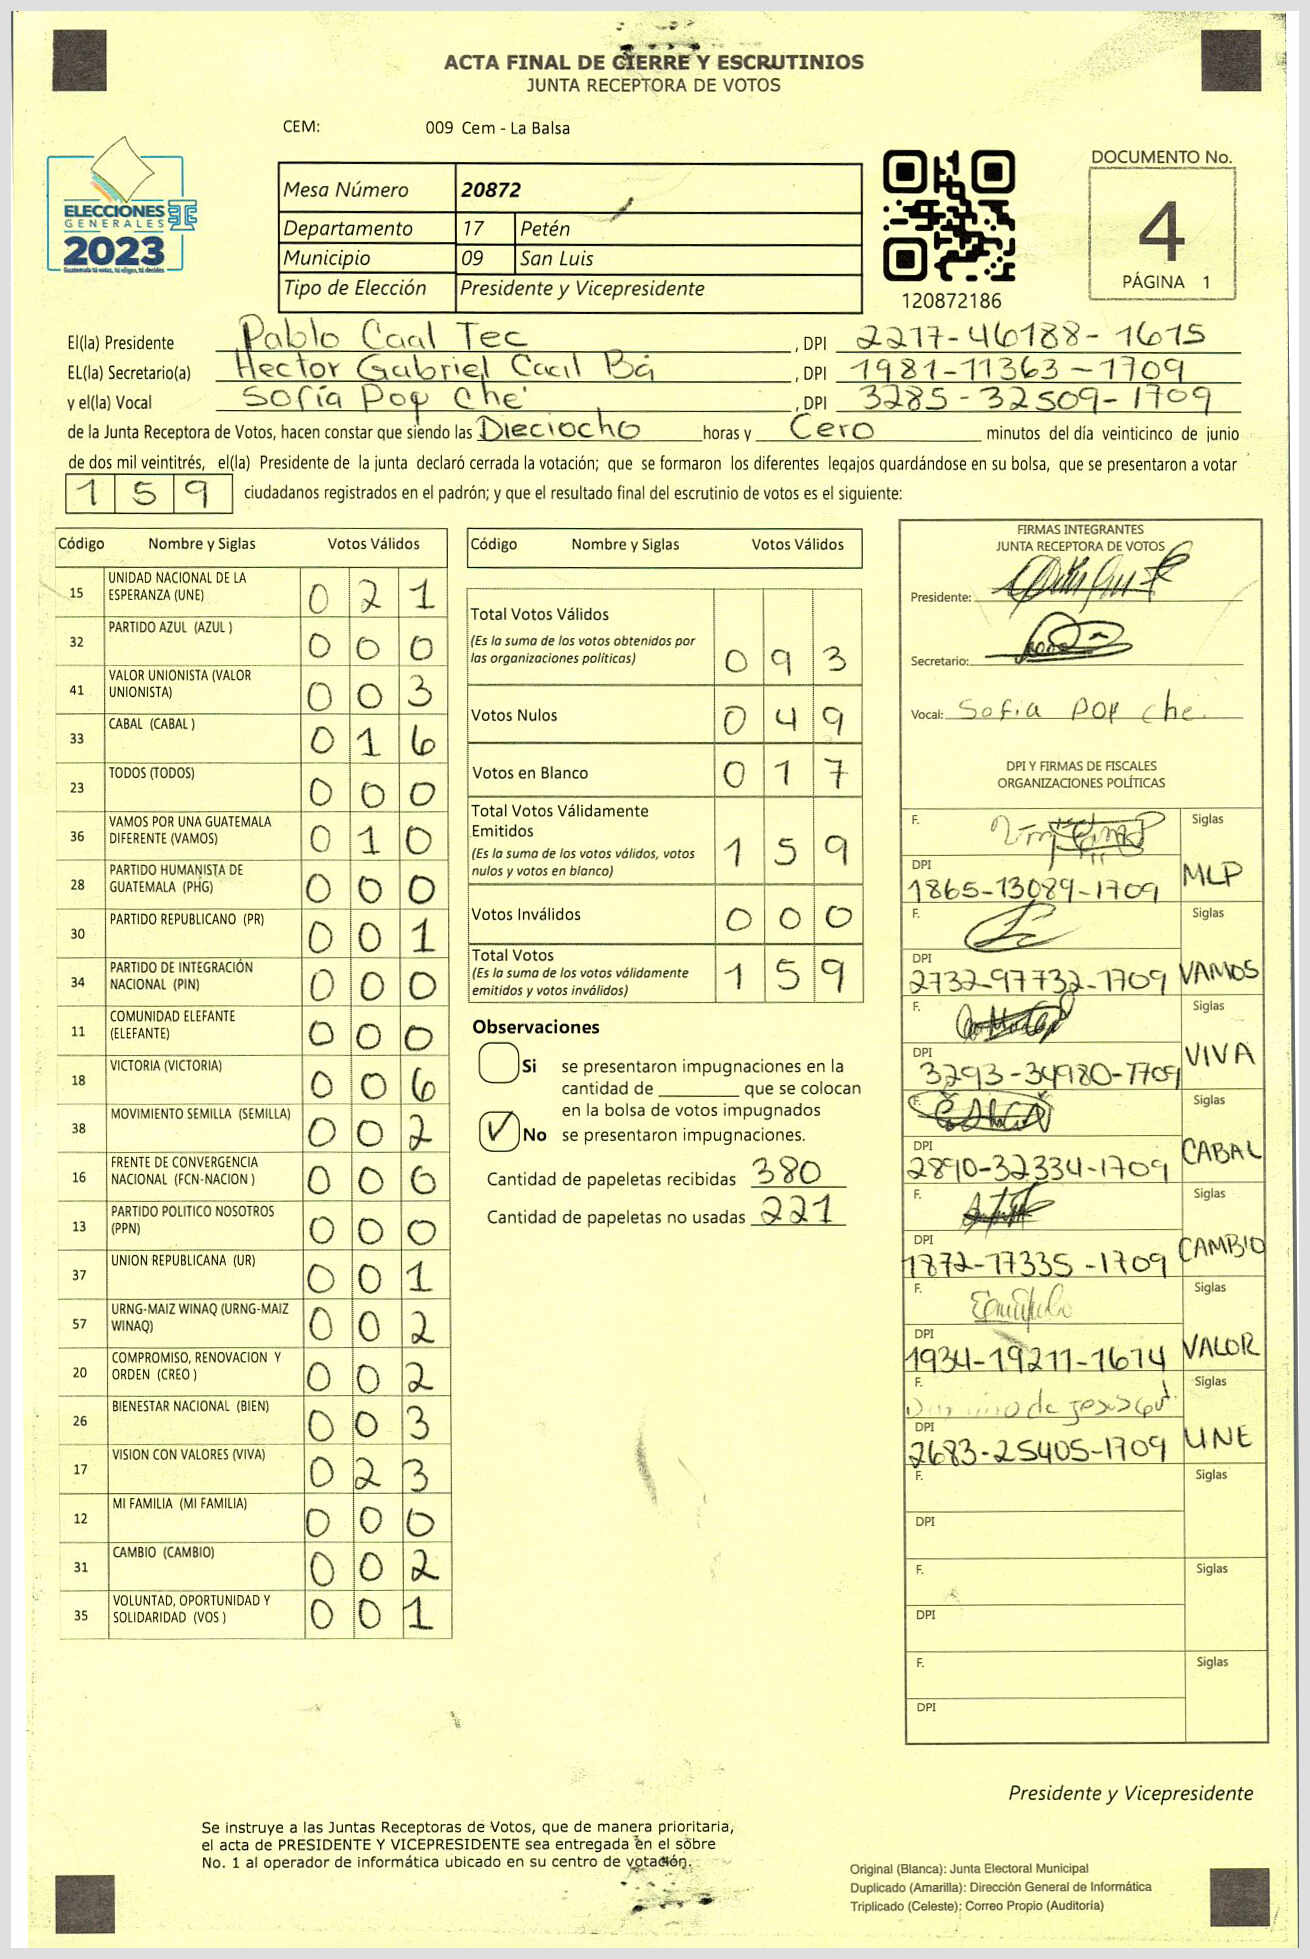 ACTA FINAL DE CIERRE Y ESCRUTINIOS
JUNTA RECEPTORA DE VOTOS
CEM: 009 Cem - La Balsa
ELECCIONES
GENERALES
2023
Guatemala tú votas, tú eliges, tú decides
Mesa Número 20872
Departamento 17 Petén
Municipio 09 San Luis
Tipo de Elección Presidente y Vicepresidente
120872186
DOCUMENTO No.
4
PÁGINA 1
El(la) Presidente Pablo Caal Tec, DPI 2217-46188-1615
EL(la) Secretario(a) Hector Gabriel Caal Bá, DPI 1981-11363-1709
y el(la) Vocal Sofía Pop Ché, DPI 3285-32509-1709
de la Junta Receptora de Votos, hacen constar que siendo las Dieciocho horas y Cero minutos del día veinticinco de junio
de dos mil veintitrés, el(la) Presidente de la junta declaró cerrada la votación; que se formaron los diferentes legajos quardándose en su bolsa, que se presentaron a votar
159 ciudadanos registrados en el padrón; y que el resultado final del escrutinio de votos es el siguiente:
Código Nombre y Siglas Votos Válidos
15 UNIDAD NACIONAL DE LA ESPERANZA (UNE) 021
32 PARTIDO AZUL (AZUL ) 000
41 VALOR UNIONISTA (VALOR UNIONISTA) 003
33 CABAL (CABAL ) 016
23 TODOS (TODOS) 000
36 VAMOS POR UNA GUATEMALA DIFERENTE (VAMOS) 010
28 PARTIDO HUMANISTA DE GUATEMALA (PHG) 000
30 PARTIDO REPUBLICANO (PR) 001
34 PARTIDO DE INTEGRACIÓN NACIONAL (PIN) 000
11 COMUNIDAD ELEFANTE (ELEFANTE) 000
18 VICTORIA (VICTORIA) 006
38 MOVIMIENTO SEMILLA (SEMILLA) 002
16 FRENTE DE CONVERGENCIA NACIONAL (FCN-NACION ) 000
13 PARTIDO POLITICO NOSOTROS (PPN) 000
37 UNION REPUBLICANA (UR) 001
57 URNG-MAIZ WINAQ (URNG-MAIZ WINAQ) 002
20 COMPROMISO, RENOVACION Y ORDEN (CREO ) 002
26 BIENESTAR NACIONAL (BIEN) 003
17 VISION CON VALORES (VIVA) 023
12 MI FAMILIA (MI FAMILIA) 000
31 CAMBIO (CAMBIO) 002
35 VOLUNTAD, OPORTUNIDAD Y SOLIDARIDAD (VOS ) 001
Código Nombre y Siglas Votos Válidos
Total Votos Válidos 093
(Es la suma de los votos obtenidos por
las organizaciones políticas)
Votos Nulos 049
Votos en Blanco 017
Total Votos Válidamente
Emitidos 159
(Es la suma de los votos válidos, votos
nulos y votos en blanco)
Votos Inválidos 000
Total Votos 159
(Es la suma de los votos válidamente
emitidos y votos inválidos)
Observaciones
Si se presentaron impugnaciones en la
cantidad de ________ que se colocan
en la bolsa de votos impugnados
✓ No se presentaron impugnaciones.
Cantidad de papeletas recibidas 380
Cantidad de papeletas no usadas 221
FIRMAS INTEGRANTES
JUNTA RECEPTORA DE VOTOS
Presidente:
Secretario:
Vocal: Sofia Pop Che.
DPI Y FIRMAS DE FISCALES
ORGANIZACIONES POLÍTICAS
F. Siglas
DPI 1865-13089-1709 MLP
F. Siglas
DPI 2732-97732-1709 VAMOS
F. Siglas
DPI 3293-34980-1709 VIVA
F. Siglas
DPI 2890-32334-1709 CABAL
F. Siglas
DPI 1872-77335-1709 CAMBIO
F. Siglas
DPI 1934-19211-1614 VALOR
F. Siglas
DPI 2683-25405-1709 UNE
F. Siglas
DPI
F. Siglas
DPI
F. Siglas
DPI
Presidente y Vicepresidente
Se instruye a las Juntas Receptoras de Votos, que de manera prioritaria,
el acta de PRESIDENTE Y VICEPRESIDENTE sea entregada en el sobre
No. 1 al operador de informática ubicado en su centro de votación.
Original (Blanca): Junta Electoral Municipal
Duplicado (Amarilla): Dirección General de Informática
Triplicado (Celeste): Correo Propio (Auditoría)